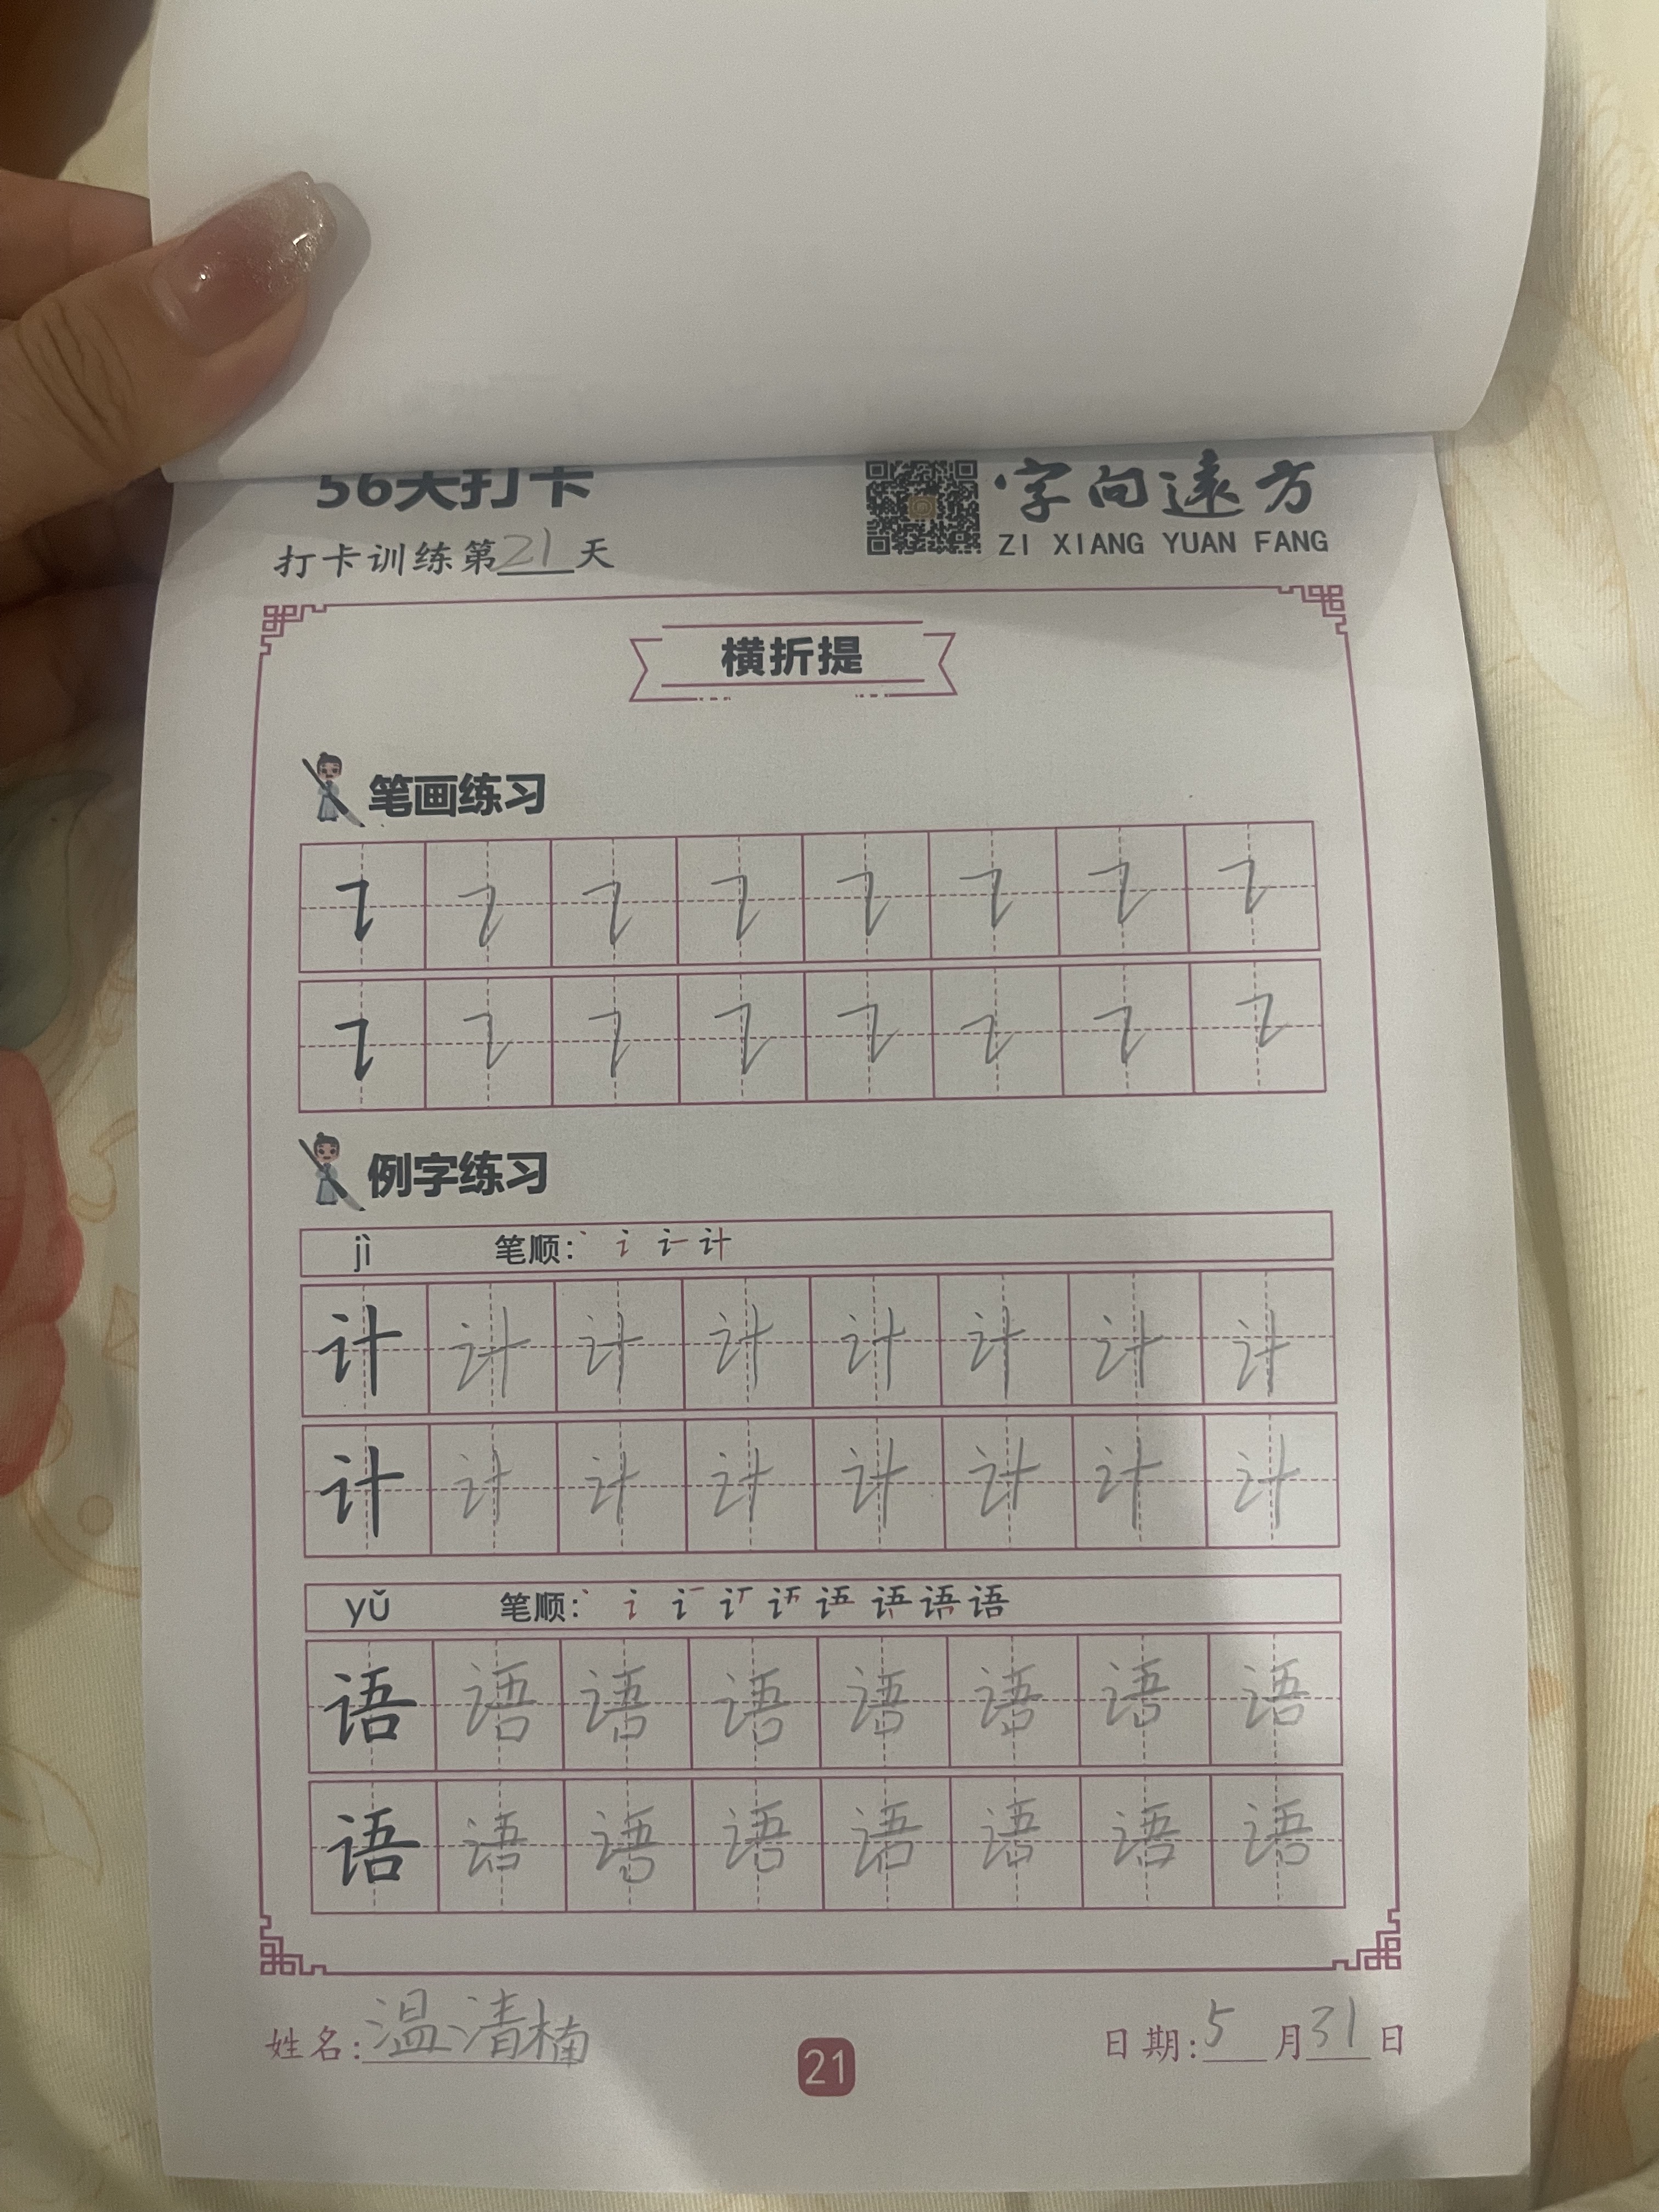 56天打卡
字向遠方
ZI XIANG YUAN FANG
打卡训练第21天
横折提
笔画练习
例字练习
jì 笔顺: 丶 讠 计
计 计 计 计 计 计 计 计
计 计 计 计 计 计 计 计
yǔ 笔顺: 丶 讠 语
语 语 语 语 语 语 语 语
语 语 语 语 语 语 语 语
姓名: 温清楠
21
日期: 5月31日